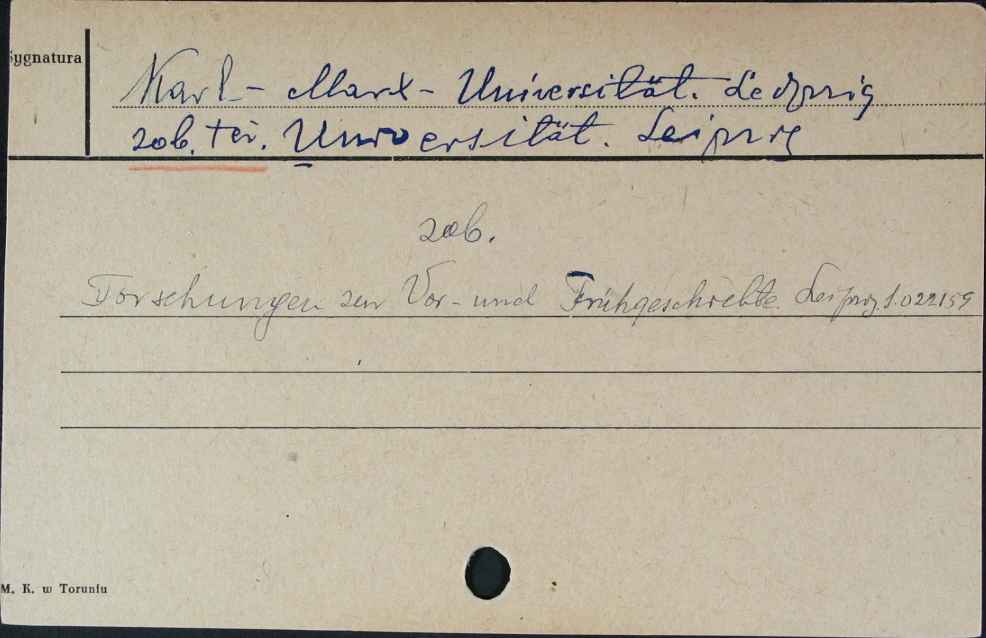 Sygnatura
Karl-Marx-Universität. Leipzig
zob. też. Universität. Leipzig
zob.
Forschungen zur Vor- und Frühgeschichte. Leipzig. 1.022159
M. K. w Toruniu